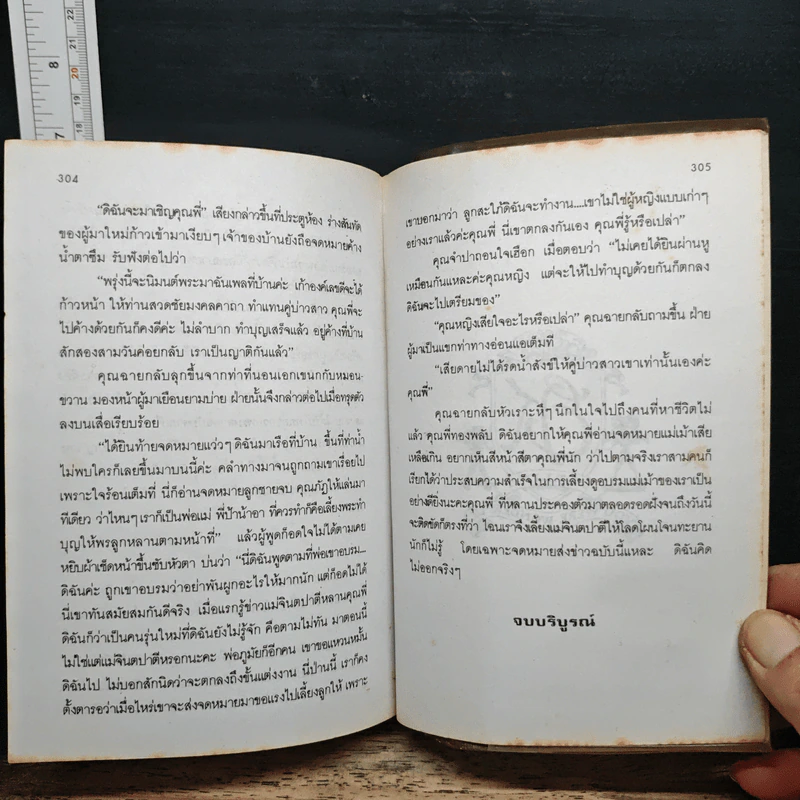 22
21
8
20
19
18
7
304
"ดิฉันจะมาเชิญคุณพี่" เสียงกล่าวขึ้นที่ประตูห้อง ร่างสันทัด
ของผู้มาใหม่ก้าวเข้ามาเงียบๆ เจ้าของบ้านยังถือจดหมายค้าง
น้ำตาซึม รับฟังต่อไปว่า
"พรุ่งนี้จะนิมนต์พระมาฉันเพลที่บ้านค่ะ เก้าองค์เลขดีจะได้
ก้าวหน้า ให้ท่านสวดชัยมงคลคาถา ทำแทนคู่บ่าวสาว คุณพี่จะ
ไปค้างด้วยกันก็คงดีค่ะ ไม่ลำบาก ทำบุญเสร็จแล้ว อยู่ค้างที่บ้าน
สักสองสามวันค่อยกลับ เราเป็นญาติกันแล้ว"
คุณฉายกลับลุกขึ้นจากท่าที่นอนเอกเขนกกับหมอน-
ขวาน มองหน้าผู้มาเยือนยามบ่าย ฝ่ายนั้นจึงกล่าวต่อไปเมื่อทรุดตัว
ลงบนเสื่อเรียบร้อย
"ได้ยินท้ายจดหมายแว่วๆ ดิฉันมาเรือที่บ้าน ขึ้นที่ท่าน้ำ
ไม่พบใครก็เลยขึ้นมาบนนี้ค่ะ คลำทางมาจนถูกถามเขาเรื่อยไป
เพราะใจร้อนเต็มที่ นี่ก็อ่านจดหมายลูกชายจบ คุณภัฏให้แล่นมา
ทีเดียว ว่าไหนๆ เราก็เป็นพ่อแม่ พี่ป้าน้าอา ที่ควรทำก็คือเลี้ยงพระทำ
บุญให้พรลูกหลานตามหน้าที่" แล้วผู้พูดก็อดใจไม่ได้ตามเคย
หยิบผ้าเช็ดหน้าขึ้นซับหัวตา บ่นว่า "นี่ดิฉันพูดตามที่พ่อเขาอบรม...
ดิฉันค่ะ ถูกเขาอบรมว่าอย่าพันผูกอะไรให้มากนัก แต่ก็อดไม่ได้
นี่เขาทันสมัยสมกันดีจริง เมื่อแรกรู้ข่าวแม่จินตปาตีหลานคุณพี่
ดิฉันก็ว่าเป็นคนรุ่นใหม่ที่ดิฉันยังไม่รู้จัก คือตามไม่ทัน มาตอนนี้
ไม่ใช่แต่แม่จินตปาตีหรอกนะคะ พ่อภูมัยก็อีกคน เขาขอแหวนหมั้น
ดิฉันไป ไม่บอกสักนิดว่าจะตกลงถึงขั้นแต่งงาน นี่ป่านนี้ เราก็คง
ตั้งตารอว่าเมื่อไหร่เขาจะส่งจดหมายมาขอแรงไปเลี้ยงลูกให้ เพราะ
305
เขาบอกมาว่า ลูกสะใภ้ดิฉันจะทำงาน....เขาไม่ใช่ผู้หญิงแบบเก่าๆ
อย่างเราแล้วค่ะคุณพี่ นี่เขาตกลงกันเอง คุณพี่รู้หรือเปล่า"
คุณจำปาถอนใจเฮือก เมื่อตอบว่า "ไม่เคยได้ยินผ่านหู
เหมือนกันแหละค่ะคุณหญิง แต่จะให้ไปทำบุญด้วยกันก็ตกลง
ดิฉันจะไปเตรียมของ"
"คุณหญิงเสียใจอะไรหรือเปล่า" คุณฉายกลับถามขึ้น ฝ่าย
ผู้มาเป็นแขกท่าทางอ่อนแอเต็มที
"เสียดายไม่ได้รดน้ำสังข์ให้คู่บ่าวสาวเขาเท่านั้นเองค่ะ
คุณพี่"
คุณฉายกลับหัวเราะหึๆ นึกในใจไปถึงคนที่หาชีวิตไม่
แล้ว คุณพี่ทองพลับ ดิฉันอยากให้คุณพี่อ่านจดหมายแม่เม้าเสีย
เหลือเกิน อยากเห็นสีหน้าสีตาคุณพี่นัก ว่าไปตามจริงเราสามคนก็
เรียกได้ว่าประสบความสำเร็จในการเลี้ยงดูอบรมแม่เม้าของเราเป็น
อย่างดียิ่งนะคะคุณพี่ ที่หลานประคองตัวมาตลอดรอดฝั่งจนถึงวันนี้
จะติดขัดก็ตรงที่ว่า ไฉนเราจึงเลี้ยงแม่จินตปาตีให้โลดโผนโจนทะยาน
นักก็ไม่รู้ โดยเฉพาะจดหมายส่งข่าวฉบับนี้แหละ ดิฉันคิด
ไม่ออกจริงๆ
จบบริบูรณ์